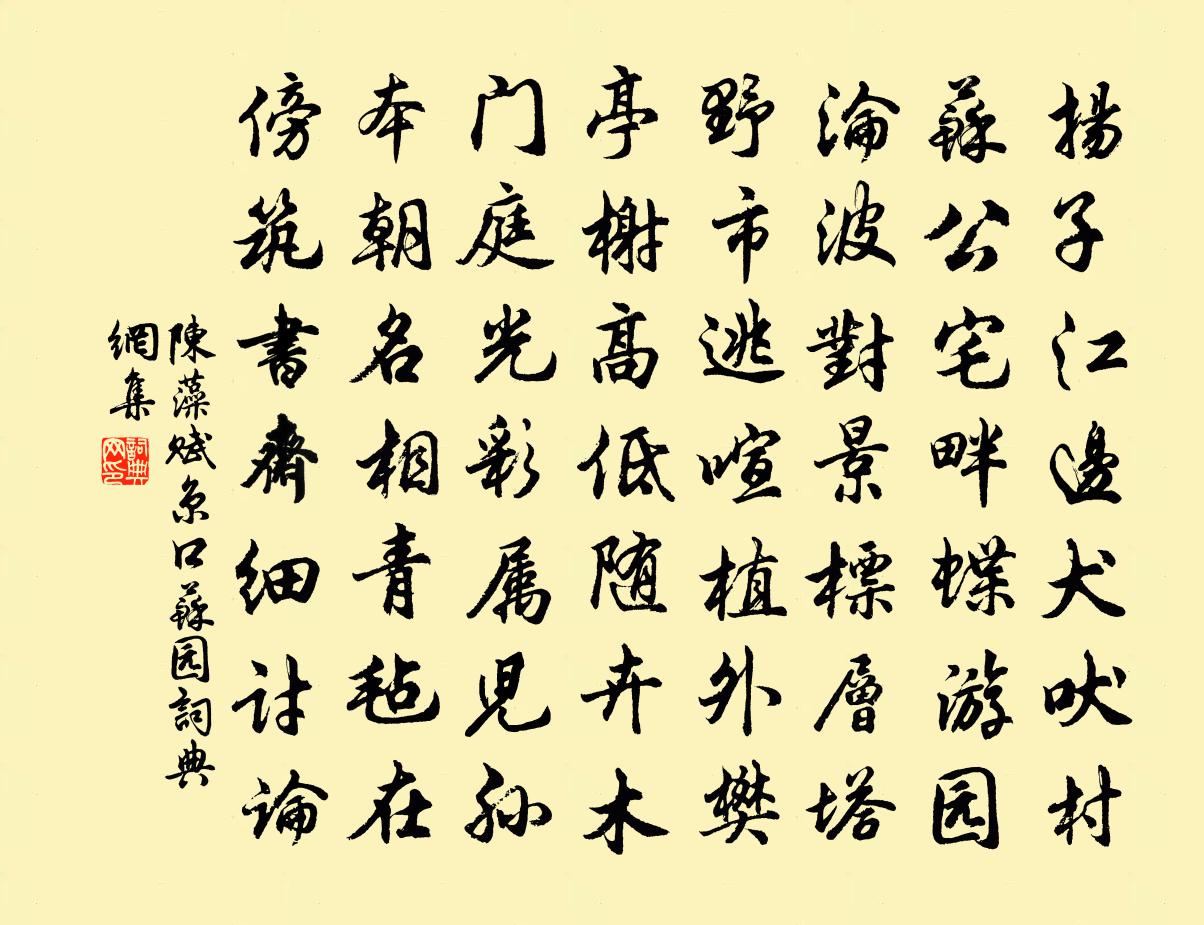 揚子江邊犬吠村
蘇公宅畔蝶游园
淪波對景標層塔
野市逃喧植外樊
亭榭高低随卉木
门庭光彩属児孙
本朝名相青毡在
傍筑書齋細討論
陳藻赋京口蘇园詞典
網集
詞典网印